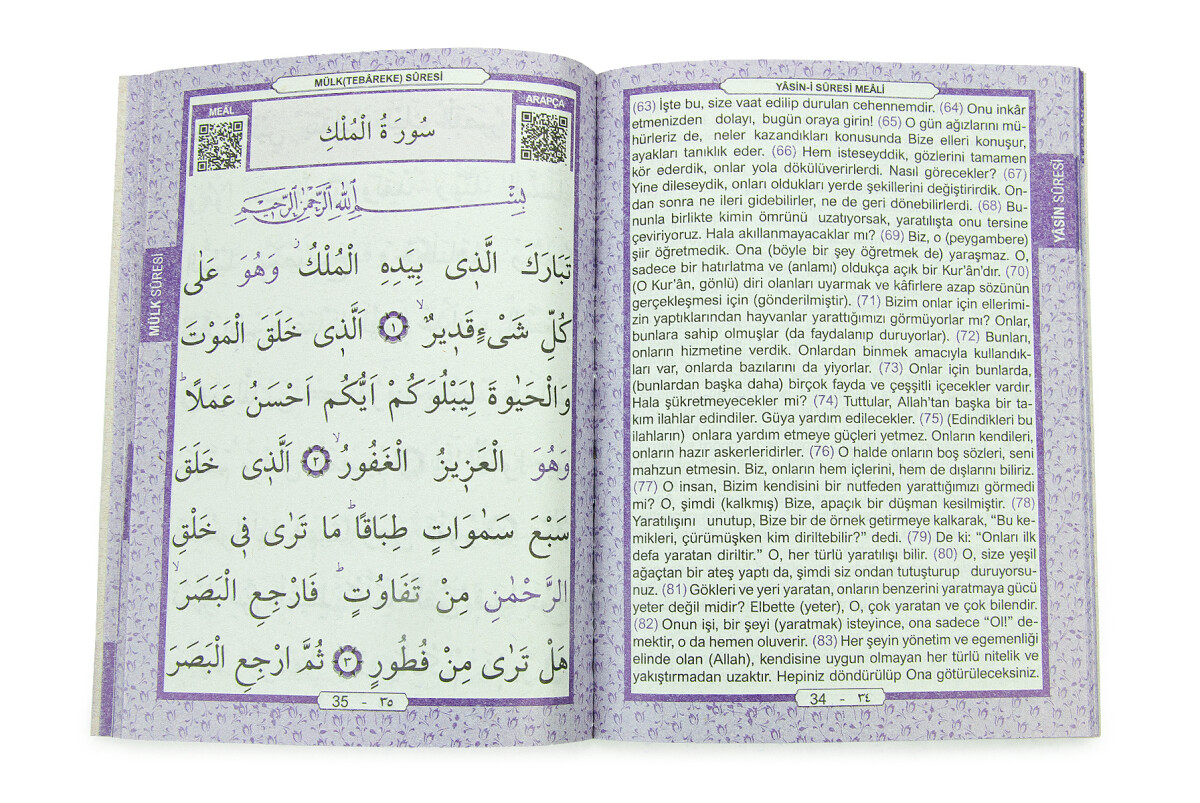 YÂSİN-İ SÛRESİ MEÂLİ
(63) İşte bu, size vaat edilip durulan cehennemdir. (64) Onu inkâr
etmenizden dolayı, bugün oraya girin! (65) O gün ağızlarını mü-
hürleriz de, neler kazandıkları konusunda Bize elleri konuşur,
ayakları tanıklık eder. (66) Hem isteseyddik, gözlerini tamamen
kör ederdik, onlar yola dökülüverirlerdi. Nasıl görecekler? (67)
Yine dileseydik, onları oldukları yerde şekillerini değiştirirdik. On-
dan sonra ne ileri gidebilirler, ne de geri dönebilirlerdi. (68) Bu-
nunla birlikte kimin ömrünü uzatıyorsak, yaratılışta onu tersine
çeviriyoruz. Hala akıllanmayacaklar mı? (69) Biz, o (peygambere)
şiir öğretmedik. Ona (böyle bir şey öğretmek de) yaraşmaz. O,
sadece bir hatırlatma ve (anlamı) oldukça açık bir Kur'ân'dır. (70)
(O Kur'ân, gönlü) diri olanları uyarmak ve kâfirlere azap sözünün
gerçekleşmesi için (gönderilmiştir). (71) Bizim onlar için ellerimi-
zin yaptıklarından hayvanlar yarattığımızı görmüyorlar mı? Onlar,
bunlara sahip olmuşlar (da faydalanıp duruyorlar). (72) Bunları,
onların hizmetine verdik. Onlardan binmek amacıyla kullandık-
ları var, onlarda bazılarını da yiyorlar. (73) Onlar için bunlarda,
(bunlardan başka daha) birçok fayda ve çeşşitli içecekler vardır.
Hala şükretmeyecekler mi? (74) Tuttular, Allah'tan başka bir ta-
kım ilahlar edindiler. Güya yardım edilecekler. (75) (Edindikleri bu
ilahların) onlara yardım etmeye güçleri yetmez. Onların kendileri,
onların hazır askerleridirler. (76) O halde onların boş sözleri, seni
mahzun etmesin. Biz, onların hem içlerini, hem de dışlarını biliriz.
(77) O insan, Bizim kendisini bir nutfeden yarattığımızı görmedi
mi? O, şimdi (kalkmış) Bize, apaçık bir düşman kesilmiştir. (78)
Yaratılışını unutup, Bize bir de örnek getirmeye kalkarak, “Bu ke-
mikleri, çürümüşken kim diriltebilir?” dedi. (79) De ki: “Onları ilk
defa yaratan diriltir.” O, her türlü yaratılışı bilir. (80) O, size yeşil
ağaçtan bir ateş yaptı da, şimdi siz ondan tutuşturup duruyorsu-
nuz. (81) Gökleri ve yeri yaratan, onların benzerini yaratmaya gücü
yeter değil midir? Elbette (yeter), O, çok yaratan ve çok bilendir.
(82) Onun işi, bir şeyi (yaratmak) isteyince, ona sadece “Ol!” de-
mektir, o da hemen oluverir. (83) Her şeyin yönetim ve egemenliği
elinde olan (Allah), kendisine uygun olmayan her türlü nitelik ve
yakıştırmadan uzaktır. Hepiniz döndürülüp Ona götürüleceksiniz.
34 - ٣٤
YÂSİN SÛRESİ
MÜLK(TEBÂREKE) SÛRESİ
MEÂL
ARAPÇA
سُورَةُ الْمُلْكِ
بِسْمِ اللّٰهِ الرَّحْمٰنِ الرَّحِيمِ
تَبَارَكَ الَّذ۪ي بِيَدِهِ الْمُلْكُۘ وَهُوَ عَلٰى
كُلِّ شَيْءٍ قَد۪يرٌۙ ﴿١﴾ اَلَّذ۪ي خَلَقَ الْمَوْتَ
وَالْحَيٰوةَ لِيَبْلُوَكُمْ اَيُّكُمْ اَحْسَنُ عَمَلًاۜ
وَهُوَ الْعَز۪يزُ الْغَفُورُۙ ﴿٢﴾ اَلَّذ۪ي خَلَقَ
سَبْعَ سَمٰوَاتٍ طِبَاقًاۜ مَا تَرٰى ف۪ي خَلْقِ
الرَّحْمٰنِ مِنْ تَفَاوُتٍۜ فَارْجِعِ الْبَصَرَۙ
هَلْ تَرٰى مِنْ فُطُورٍ ﴿٣﴾ ثُمَّ ارْجِعِ الْبَصَرَ
35 - ٣٥
MÜLK SÛRESİ